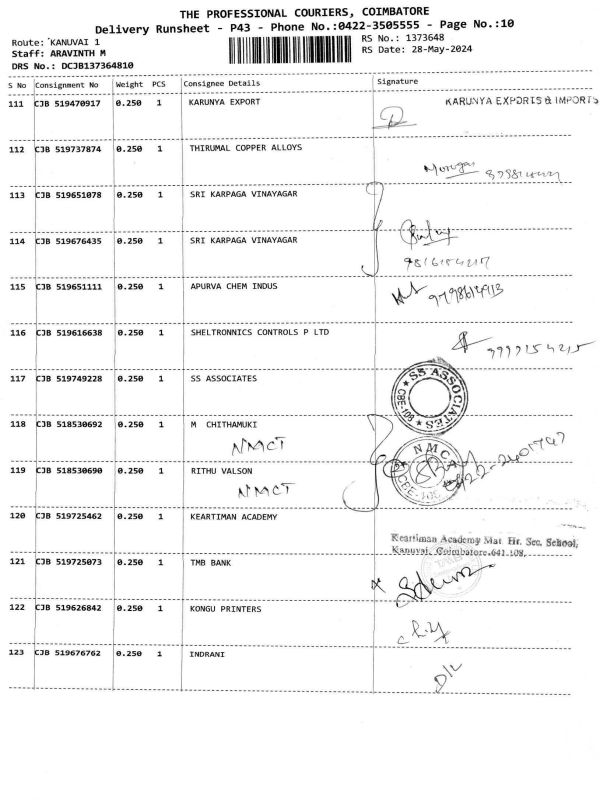 THE PROFESSIONAL COURIERS, COIMBATORE
Delivery Runsheet - P43 - Phone No.:0422-3505555 - Page No.:10
Route: KANUVAI 1
Staff: ARAVINTH M
DRS No.: DCJB137364810
RS No.: 1373648
RS Date: 28-May-2024
S No Consignment No Weight PCS Consignee Details Signature
111 CJB 519470917 0.250 1 KARUNYA EXPORT KARUNYA EXPORTS & IMPORTS
112 CJB 519737874 0.250 1 THIRUMAL COPPER ALLOYS
Morugan
113 CJB 519651078 0.250 1 SRI KARPAGA VINAYAGAR
114 CJB 519676435 0.250 1 SRI KARPAGA VINAYAGAR
115 CJB 519651111 0.250 1 APURVA CHEM INDUS
116 CJB 519616638 0.250 1 SHELTRONNICS CONTROLS P LTD
117 CJB 519749228 0.250 1 SS ASSOCIATES
SS ASSOCIATES
CBE-108
118 CJB 518530692 0.250 1 M CHITHAMUKI
NMCT
NMC
119 CJB 518530690 0.250 1 RITHU VALSON
NMCT
120 CJB 519725462 0.250 1 KEARTIMAN ACADEMY
Keartiman Academy Mat. Hr. Sec. School,
Kanuvai, Coimbatore-641 108.
121 CJB 519725073 0.250 1 TMB BANK
122 CJB 519626842 0.250 1 KONGU PRINTERS
123 CJB 519676762 0.250 1 INDRANI
D/L